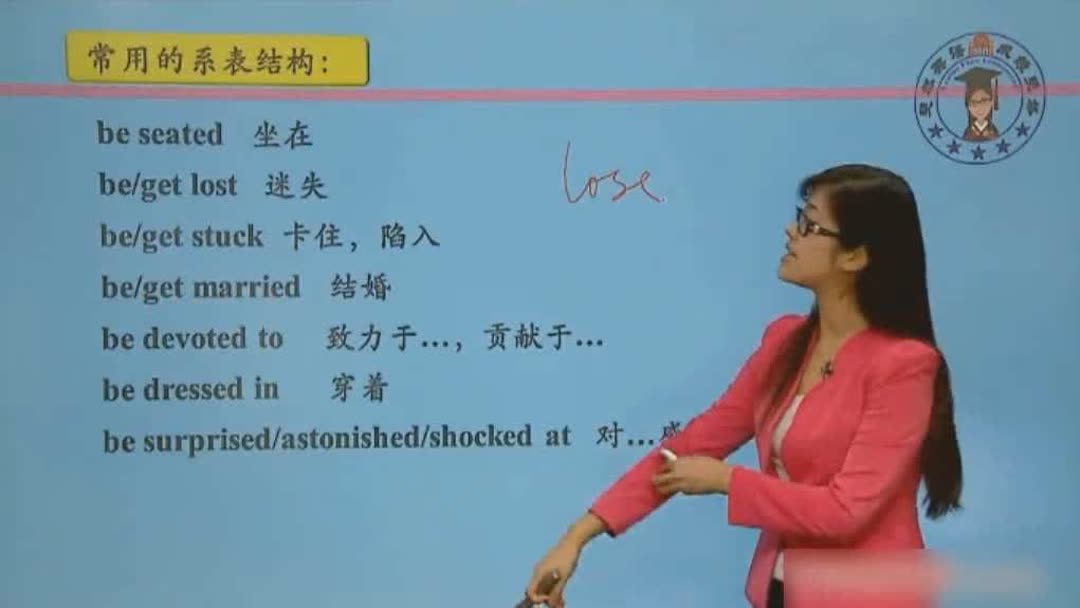 常用的系表结构：
be seated 坐在
be/get lost 迷失
be/get stuck 卡住，陷入
be/get married 结婚
be devoted to 致力于…，贡献于…
be dressed in 穿着
be surprised/astonished/shocked at 对…
lose